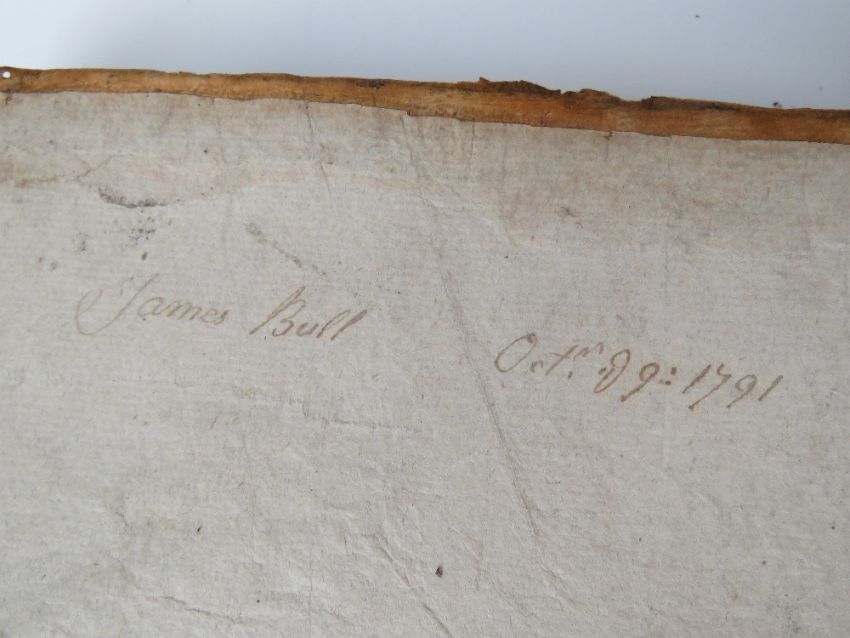 James Bull
Octr. 9: 1791